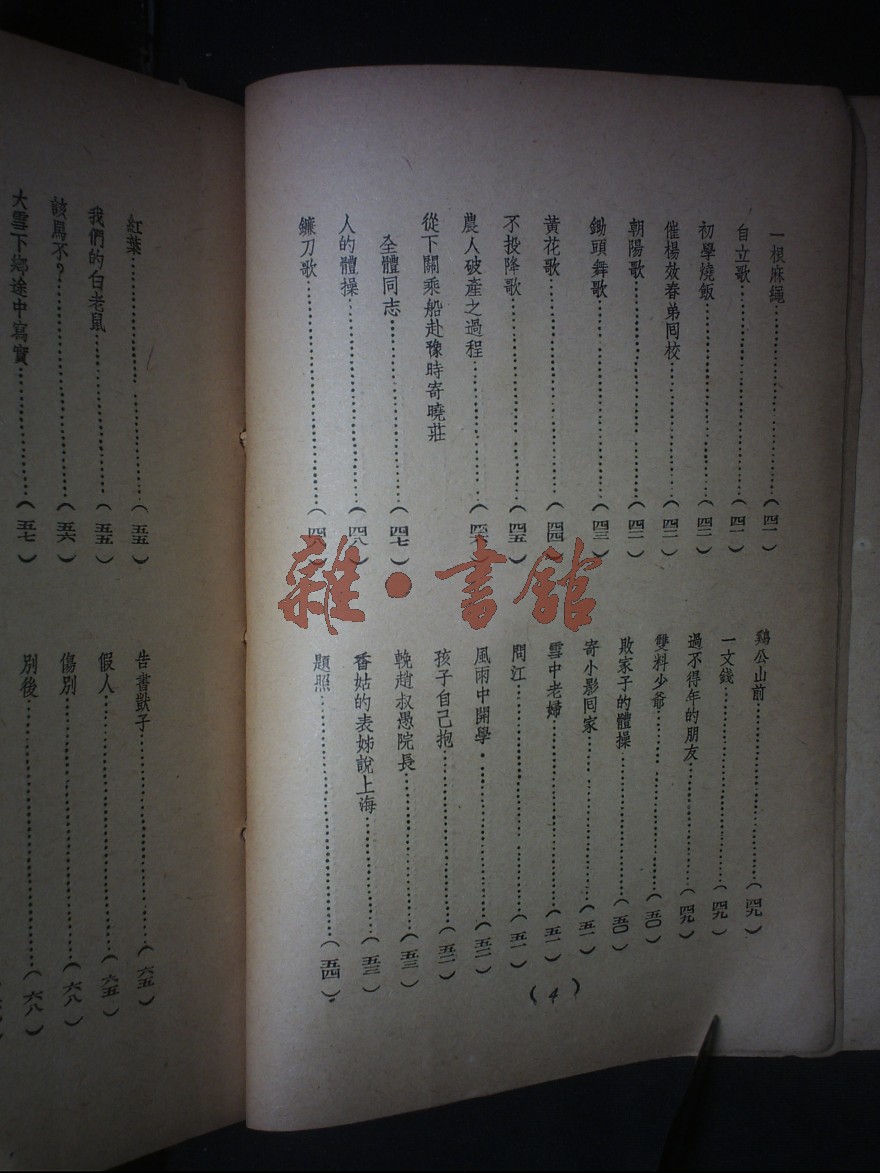 一根麻繩……（四一）
自立歌……（四一）
初學燒飯……（四二）
催楊效春弟囘校……（四二）
朝陽歌……（四二）
鋤頭舞歌……（四三）
黃花歌……（四四）
不投降歌……（四五）
農人破產之過程……（四六）
從下關乘船赴豫時寄曉莊
全體同志……（四七）
人的體操……（四八）
鐮刀歌……（四八）
鷄公山前……（四九）
一文錢……（四九）
過不得年的朋友……（四九）
雙料少爺……（五〇）
敗家子的體操……（五〇）
寄小影囘家……（五一）
雪中老婦……（五一）
問江……（五一）
風雨中開學……（五二）
孩子自己抱……（五二）
輓趙叔愚院長……（五三）
香姑的表姊說上海……（五三）
題照……（五四）
（4）
紅葉……（五五）
我們的白老鼠……（五五）
該罵不？……（五六）
大雪下鄉途中寫實……（五七）
告書獃子……（六五）
假人……（六五）
傷別……（六八）
別後……（六八）
雜·書舘